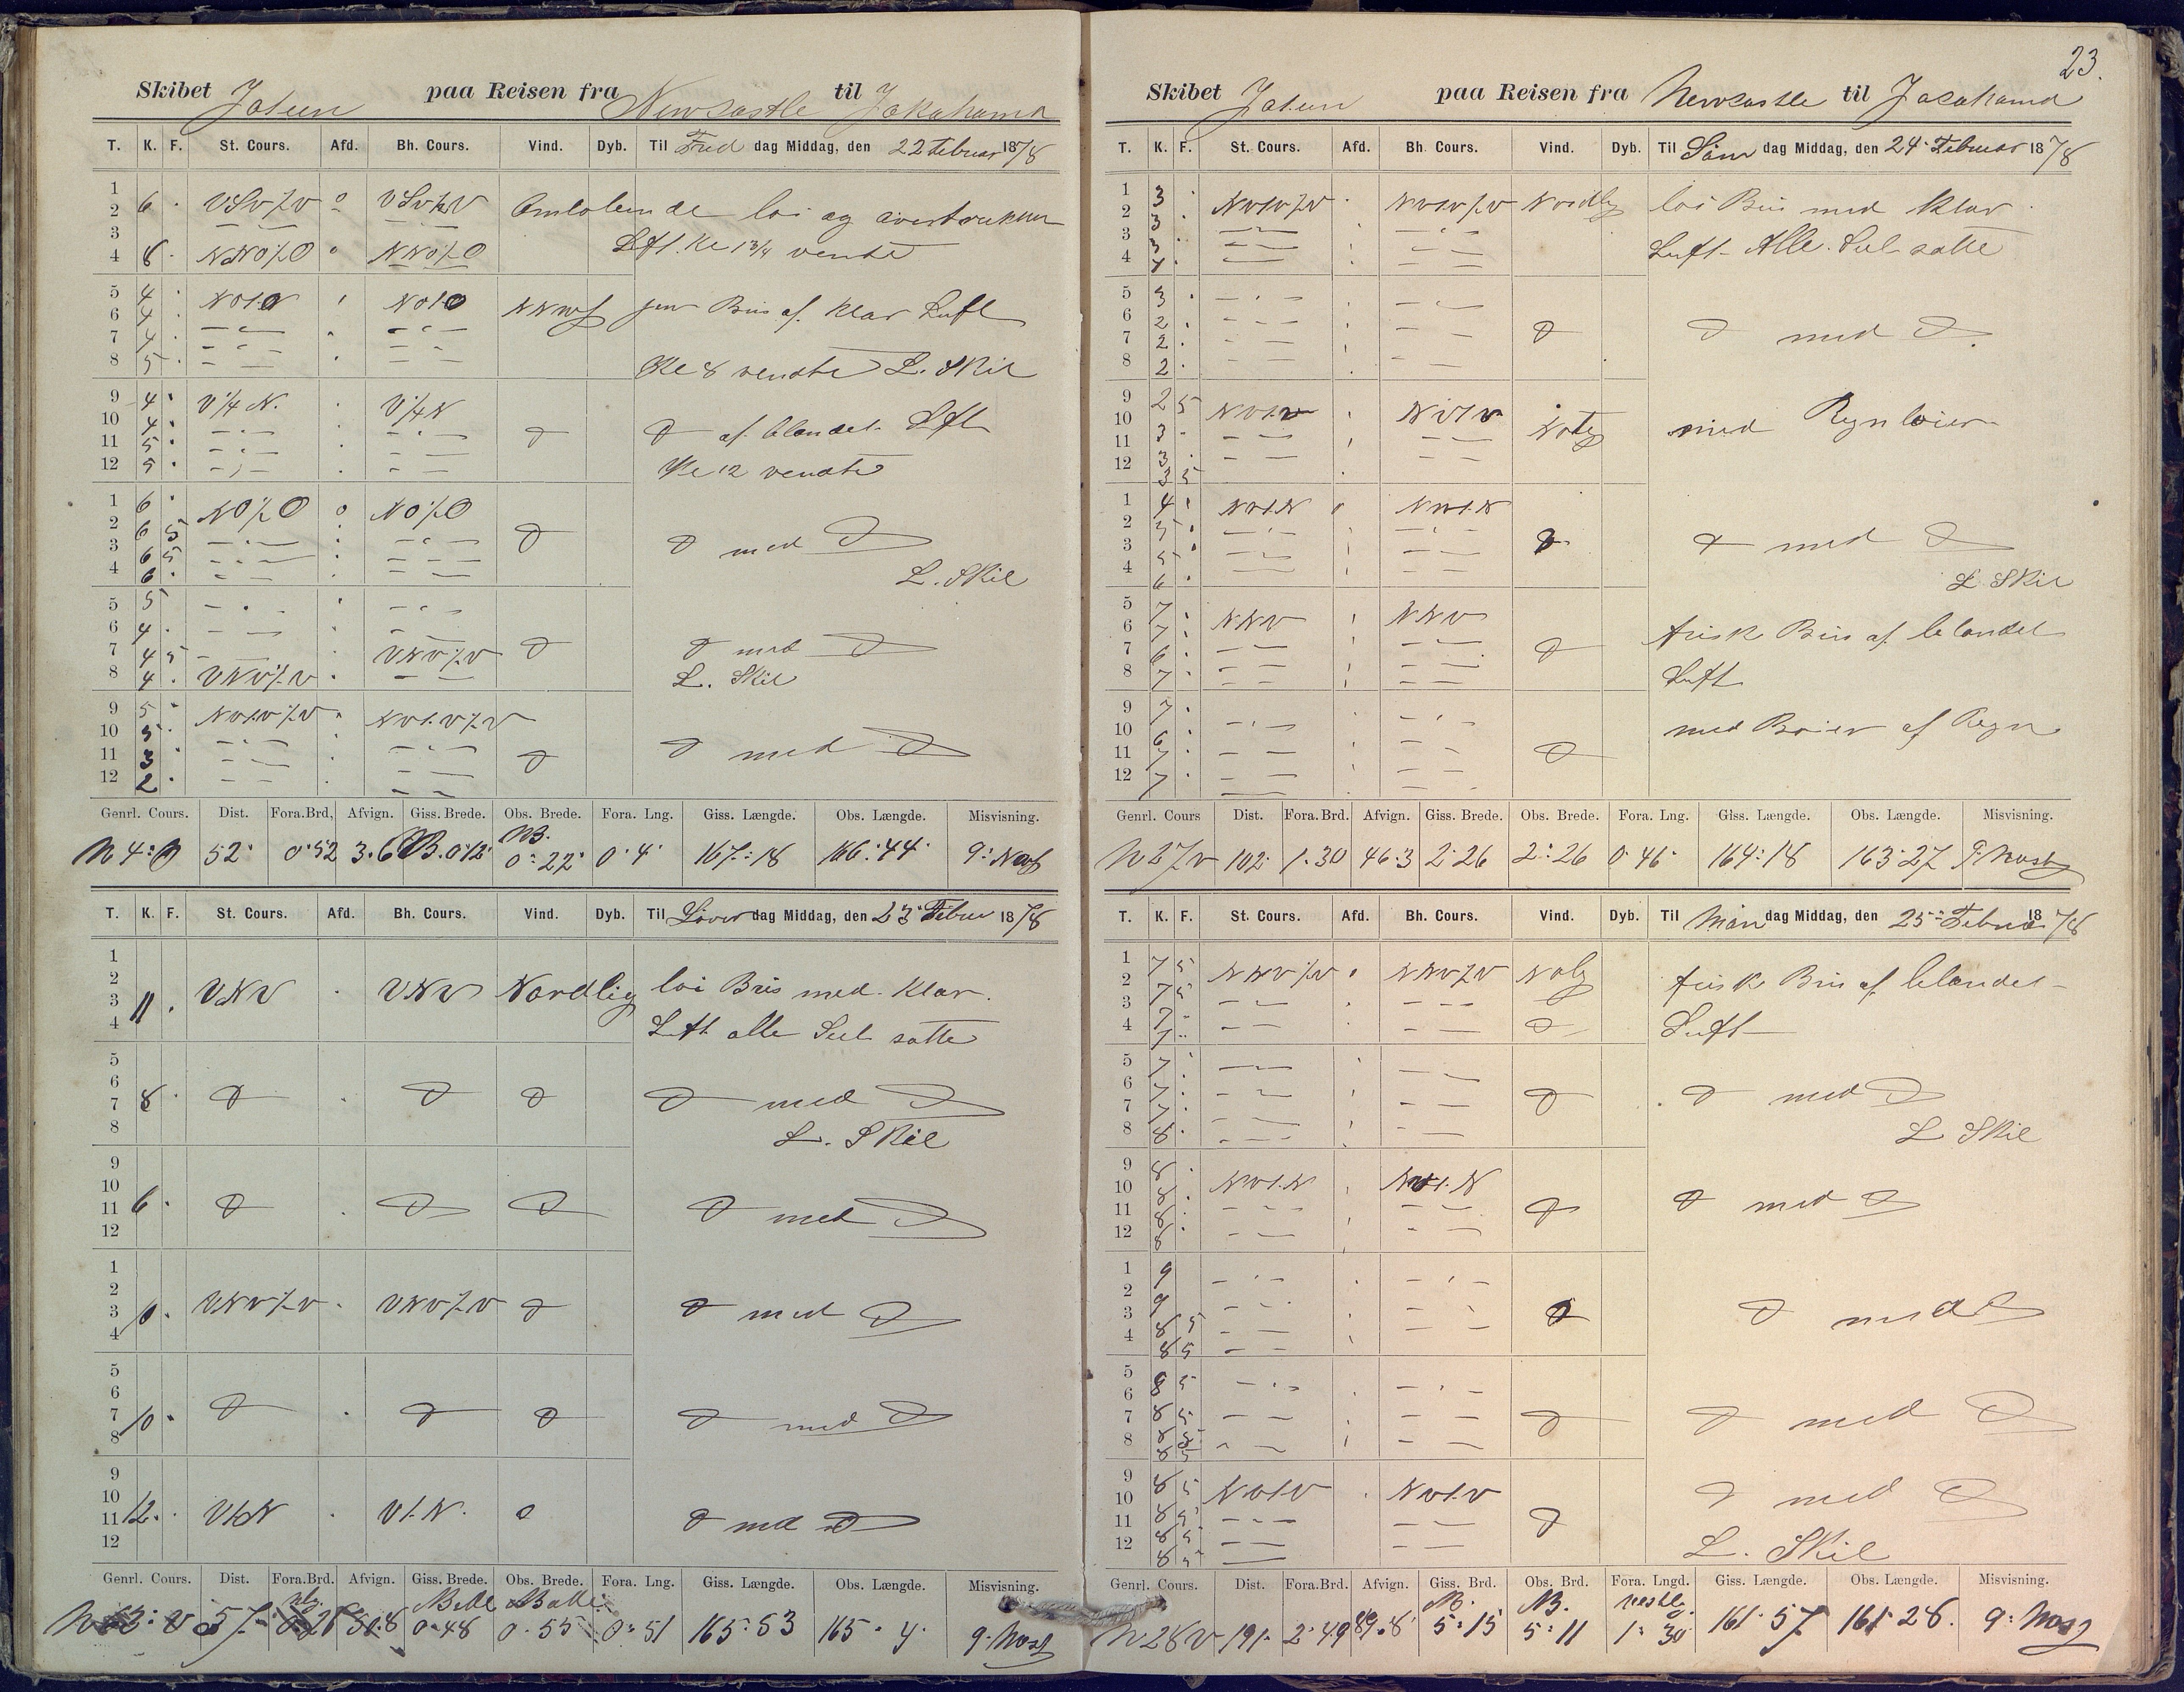 Skibet Jotun paa Reisen fra Newcastle til Jokohama
T. K. F. St. Cours. Afd. Bh. Cours. Vind. Dyb. Til Fred dag Middag, den 22 Februar 1878
1
2 6 VSV½V VSV½V Omlobende loi og overtrukken
3
4 8 NNO½O NNO½O Luft. Kl 1¾ vendte
5 4 NO t O NO t O NNW jen Bris af klar Luft
6 4
7 4
8 5 Kl 8 vendte L. Skil
9 4 V ¼ N. V ¼ N
10 4 af blandet Luft
11 5
12 5 Kl 12 vendte
1 6 NO½O NO½O
2 6 5
3 6 5 med
4 6 L. Skil
5 5
6 4
7 4 5 VNV½V med
8 4 VNV½V L. Skil
9 5 NV t V½V NV t V½V
10 5
11 3 med
12 2
Genrl. Cours. Dist. Fora.Brd. Afvign. Giss. Brede. Obs. Brede. Fora. Lng. Giss. Længde. Obs. Længde. Misvisning.
N 4 O 52 0 52 3.6 B. 0 12 NB. 0 22 0 4 167 18 166 44 9
T. K. F. St. Cours. Afd. Bh. Cours. Vind. Dyb. Til Löver dag Middag, den 23 Februar 1878
1
2
3 11 VNV VNV Nordlig loi Bris med klar
4 Luft alle Seil satte
5
6
7 8 med
8 L. Skil
9
10
11 6 med
12
1
2
3 10 VNV½V VNV½V med
4
5
6
7 10 med
8
9
10
11 12 V t N V t N. med
12
Genrl. Cours. Dist. Fora.Brd. Afvign. Giss. Brede. Obs. Brede. Fora. Lng. Giss. Længde. Obs. Længde. Misvisning.
57 0 26 50.8 0 48 0 55 0 51 165 53 165 4 9
23.
Skibet Jotun paa Reisen fra Newcastle til Jocohama
T. K. F. St. Cours. Afd. Bh. Cours. Vind. Dyb. Til Sön dag Middag, den 24 Februar 1878
1 3 NV t V½V NV t V½V Nordlig loi Bris med klar
2 3
3 3 Luft Alle Seil satte
4 4
5 3
6 2 med
7 2
8 2
9 2 5 NV t V NV t V
10 3 med Regnboier
11 3
12 3 5
1 4 NV t N NV t N
2 5
3 5 med
4 6 L Skil
5 7 NNV NNV
6 7 frisk Bris af blandet
7 6
8 7 Luft
9 7 med Boier af Regn
10 6
11 7
12 7
Genrl. Cours Dist. Fora.Brd. Afvign. Giss. Brede. Obs. Brede. Fora. Lng. Giss. Længde. Obs. Længde. Misvisning.
N 27 V 102 1 30 46 3 2 26 2 26 0 46 164 18 163 27 9
T. K. F. St. Cours. Afd. Bh. Cours. Vind. Dyb. Til Man dag Middag, den 25 Februar 1878
1 7 5 NNV½V NNV½V Nolg frisk Bris af blandet
2 7 5
3 7 Luft
4 7
5 7
6 7 med
7 7
8 8 L Skil
9 8 NV t N NV t N
10 8 med
11 8
12 8
1 9
2 9
3 8 5 med
4 8 5
5 8 5
6 8 5
7 8 5 med
8 8 5
9 8 5 NV t V NV t V
10 8 5 med
11 8 5
12 8 5 L. Skil
Genrl. Cours. Dist. Fora.Brd. Afvign. Giss. Brd. Obs. Brd. Fora. Lngd. Giss. Længde. Obs. Længde. Misvisning.
N 28 V 191 2 49 89.8 N. 5 15 N. 5 11 vestlg. 1 30 161 57 161 28 9